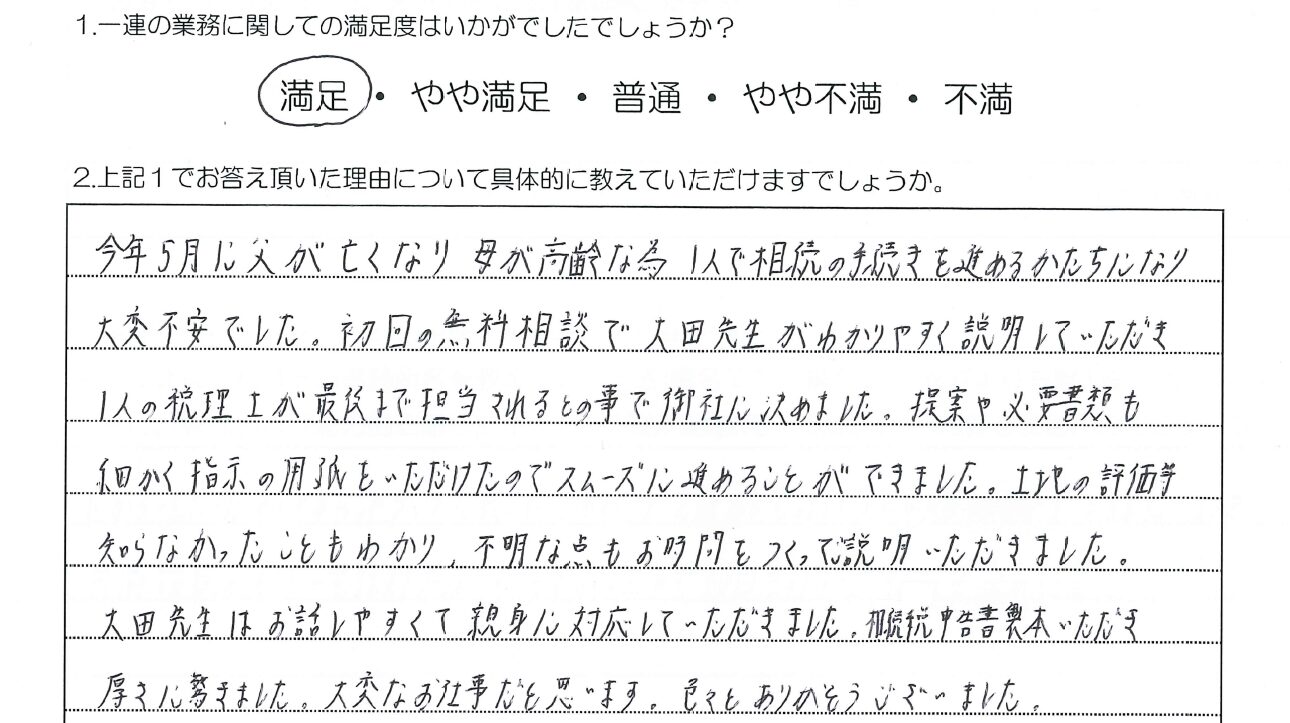 1.一連の業務に関しての満足度はいかがでしたでしょうか？
満足・やや満足・普通・やや不満・不満
2.上記１でお答え頂いた理由について具体的に教えていただけますでしょうか。
今年5月に父が亡くなり 母が高齢な為 1人で相続の手続きを進めるかたちになり
大変不安でした。初回の無料相談で 大田先生がわかりやすく説明していただき
1人の税理士が最後まで担当されるとの事で御社に決めました。提案や必要書類も
細かく指示の用紙をいただけたのでスムーズに進めることができました。土地の評価等
知らなかったこともわかり、不明な点もお時間をつくってご説明いただきました。
大田先生はお話しやすくて親身に対応していただきました。相続税申告書製本いただき
厚さに驚きました。大変なお仕事だと思います。色々とありがとうございました。